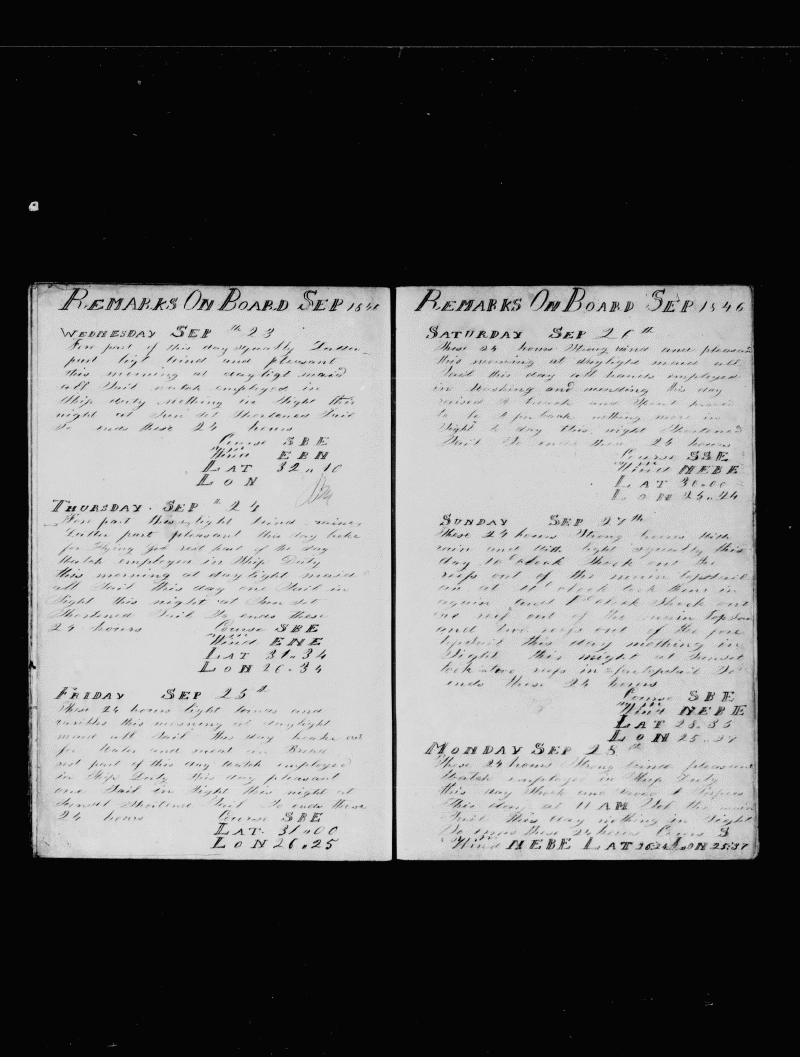 REMARKS ON BOARD SEP 1846
WEDNESDAY SEP th 23
Fore part of this day squally Latter
part ligt wind and pleasant
this morning at dayligt maid
all Sail watch employed in
Ship duty nothing in Sight this
night at Sun Set Shortened Sail
So ends these 24 hours
Course SBE
Wind EBN
LAT 32.10
LON
THURSDAY SEP th 24
Fore part this light wind
Latter part pleasant this day
for flying Gib rest part of the day
Watch employed in Ship Duty
this morning at daylight maid
all Sail This day one Sail in
Sight this night at Sun Set
Shortened Sail So ends these
24 hours Course SBE
Wind ENE
LAT 31.34
LON 26.34
FRIDAY SEP 25 th
These 24 hours light winds and
this morning at daylight
maid all Sail this day out
for Water and meat an Bread
rest part of this day Watch employed
in Ship Duty This day pleasant
one Sail in Sight This night at
Sunset Shortend Sail So ends these
24 hours Course SBE
LAT. 31.00
LON 26.25
REMARKS ON BOARD SEP 1846
SATURDAY SEP 26 th
These 24 hours Strong wind and pleasant
this morning at daylight maid all
Sail this day all hands employed
in Washing and mending this day
raised a and
to be a nothing more in
Sight to day this night Shortened
Sail So ends these 24 hours
Course SSE
Wind NEBE
LAT 30.00
LON 25.24
SUNDAY SEP 27 th
These 24 hours Strong with
rain and With light squally this
day 10 oclock Shook out the
reefs out of the main topsail
an at 11 oclock took them in
again and 1 oclock Shook out
reef out of the main Topsail
and two reefs out of the fore
topsail this day nothing in
Sight This night at Sunset
took two reefs in fortopsail So
ends these 24 hours
Course SBE
Wind NEBE
LAT 28.
LON 25.27
MONDAY SEP 28 th
These 24 hours Strong wind pleasant
Watch employed in Ship Duty
this day
This day at 11 AM Set the main
Sail This day nothing in Sight
So ends these 24 hours Cours S
Wind NEBE LAT LON 25:37